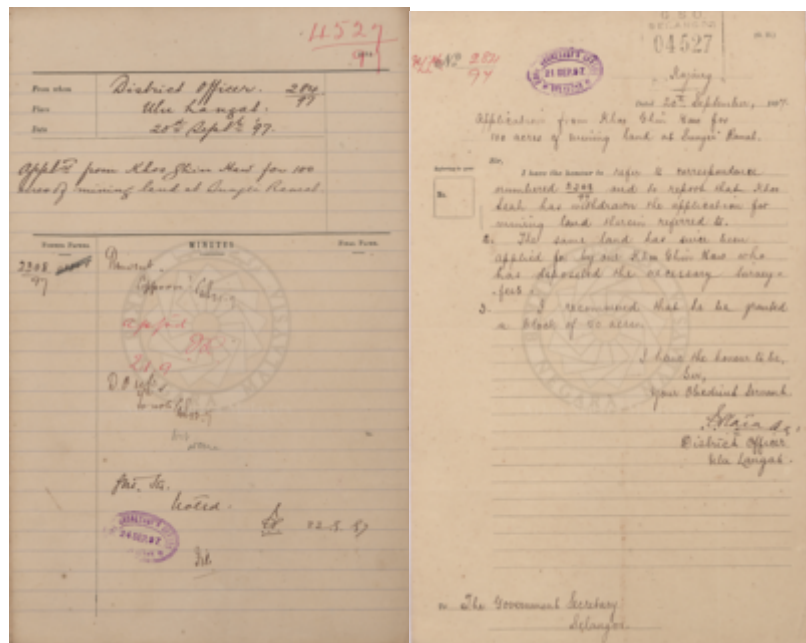 4527
97
From whom District Officer. 284
97
Place Ulu Langat.
Date 20th Septbr '97.
Appltn from Khoo Ghin Haw for 100
acres of mining land at Sungei Ramal.
FORMER PAPER.
MINUTES.
2308
97
Resident.
D.O U.L.
to note
Noted.
22.9.97
24 SEP.97
SELANGOR
04527
No 284
97
SECRETARY'S OFFICE
21 SEP.97
Kajang
20th September, 1897.
Application from Khoo Ghin Haw for
100 acres of mining land at Sungei Ramal.
Sir,
I have the honour to refer to correspondence
numbered 2308
97 and to report that Khoo
Seah has withdrawn the application for
mining land therein referred to.
2. The same land has since been
applied for by one Khoo Ghin Haw who
has deposited the necessary survey-
fees.
3. I recommend that he be granted
a block of 50 acres.
I have the honour to be,
Sir,
Your Obedient Servant
District Officer
Ulu Langat.
The Government Secretary
Selangor